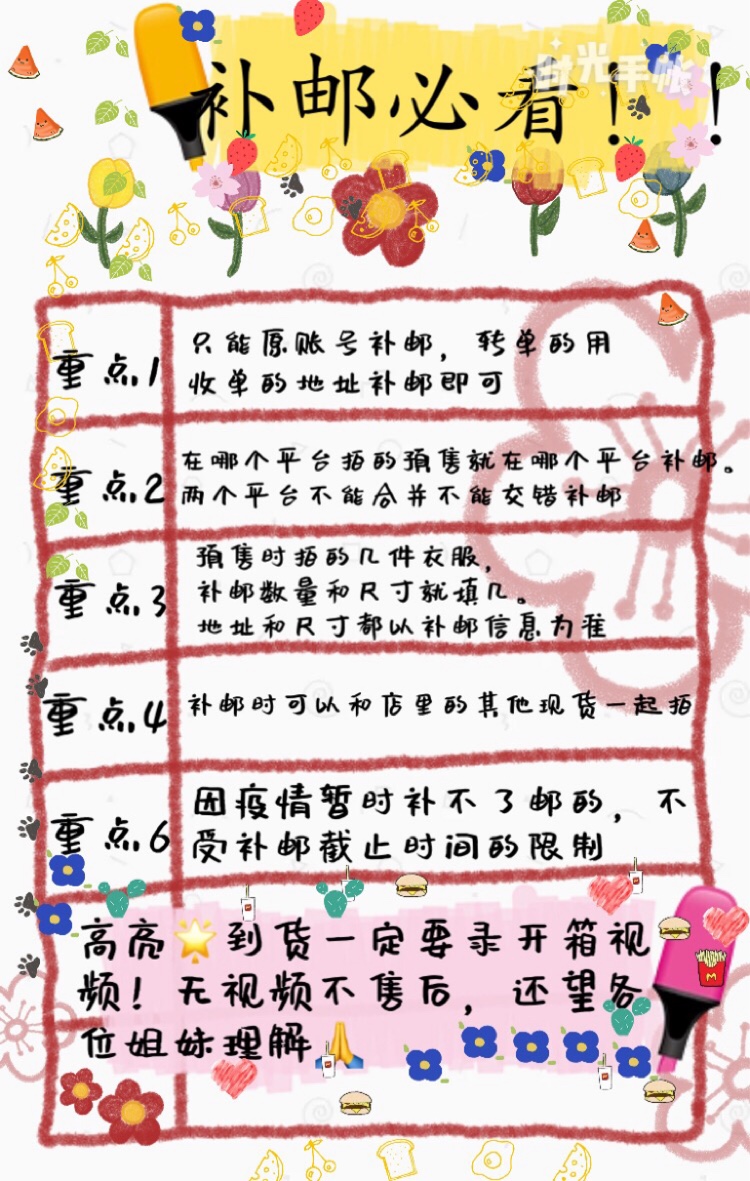 时光手帐
补邮必看！！
重点1
只能原账号补邮，转单的用
收单的地址补邮即可
重点2
在哪个平台拍的预售就在哪个平台补邮。
两个平台不能合并不能交错补邮
重点3
预售时拍的几件衣服，
补邮数量和尺寸就填几。
地址和尺寸都以补邮信息为准
重点4
补邮时可以和店里的其他现货一起拍
重点6
因疫情暂时补不了邮的，不
受补邮截止时间的限制
高亮🌟到货一定要录开箱视
频！无视频不售后，还望各
位姐妹理解🙏